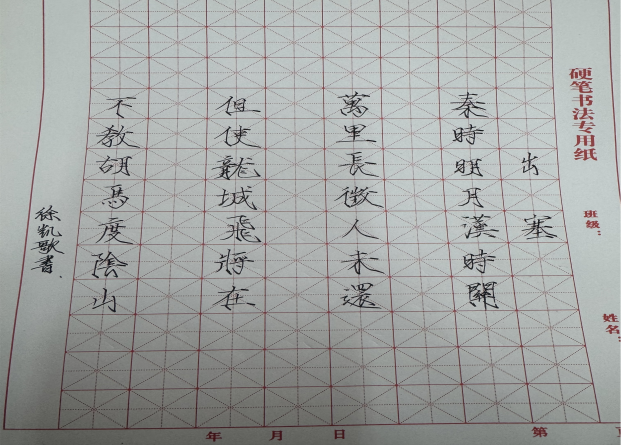 硬笔书法专用纸
班级：
姓名：
出塞
秦時明月漢時關
萬里長徵人未還
但使龍城飛將在
不教胡馬度陰山
徐凱歌書
年 月 日
第